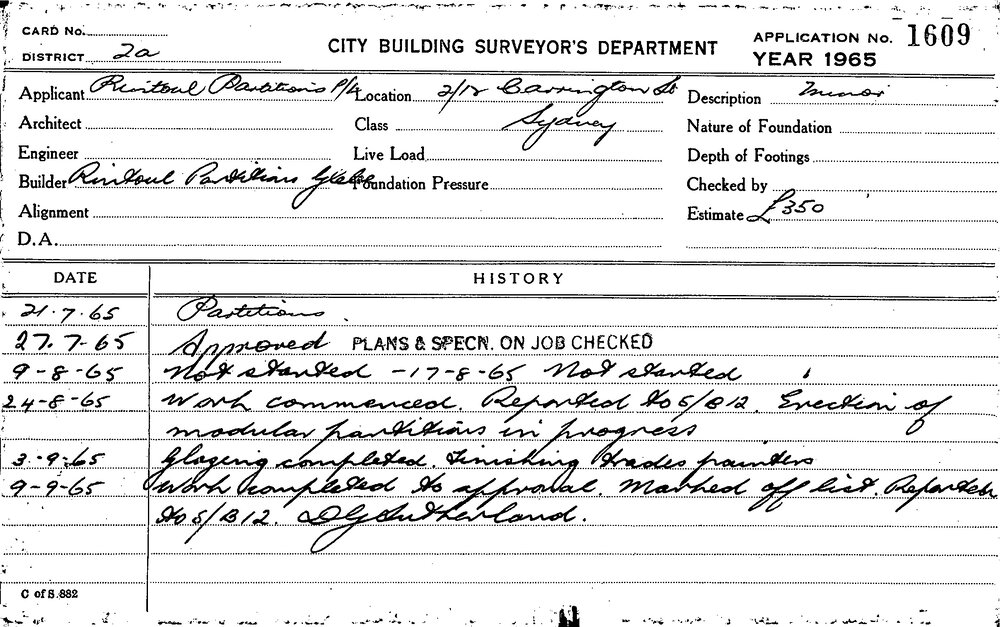 CARD No.
DISTRICT 2a
CITY BUILDING SURVEYOR'S DEPARTMENT
APPLICATION No. 1609
YEAR 1965
Applicant Rintoul Partitions P/L
Location 2/12 Carrington St
Sydney
Description Minor
Architect
Class
Nature of Foundation
Engineer
Live Load
Depth of Footings
Builder Rintoul Partitions Glebe
Foundation Pressure
Checked by
Alignment
Estimate £350
D.A.
DATE HISTORY
21.7.65 Partitions.
27.7.65 Approved PLANS & SPECN. ON JOB CHECKED
9-8-65 Not started -17-8-65 Not started
24-8-65 Work commenced. Reported to S/B12. Erection of
modular partitions in progress
3.9.65 Glazing completed. Finishing trades painters
9-9-65 Work completed to approval. Marked off list. Reported
to S/B12. DGSutherland.
C of S.882